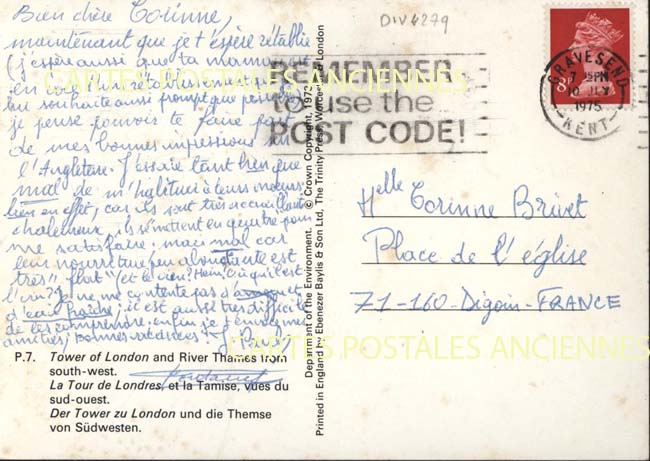 Bien chère Corinne,
maintenant que je t'espère rétablie
(j'espère aussi que ta maman est
en voie de rétablissement, que je
lui souhaite aussi prompt que possible)
je pense pouvoir te faire part
de mes bonnes impressions sur
l'Angleterre. J'essaie tant bien que
mal de m'habituer à leurs mœurs:
bien en effet, car ils sont très accueillants,
chaleureux, ils se mettent en quatre pour
me satisfaire; mais mal car
leur nourriture peu abondante est
très "flat" (et le vin? Hein! Où qu'il est
l'vin? Je ne me contente pas d'
d'eau fraîche; il est aussi très difficile
de les comprendre. enfin je t'envoie mes
amitiés, bonnes vacances.
P.7. Tower of London and River Thames from
south-west.
La Tour de Londres, et la Tamise, vues du
sud-ouest.
Der Tower zu London und die Themse
von Südwesten.
Department of the Environment. © Crown Copyright, 1973
Printed in England by Ebenezer Baylis & Son Ltd, The Trinity Press, Worcester, London
DIV4279
REMEMBER
to use the
POST CODE!
GRAVESEND
PM
10 JLY
1975
KENT
8P
Melle Corinne Brivet
Place de l'église
71-160-Digoin-FRANCE
CARTES POSTALES ANCIENNES
CARTES POSTALES ANCIENNES